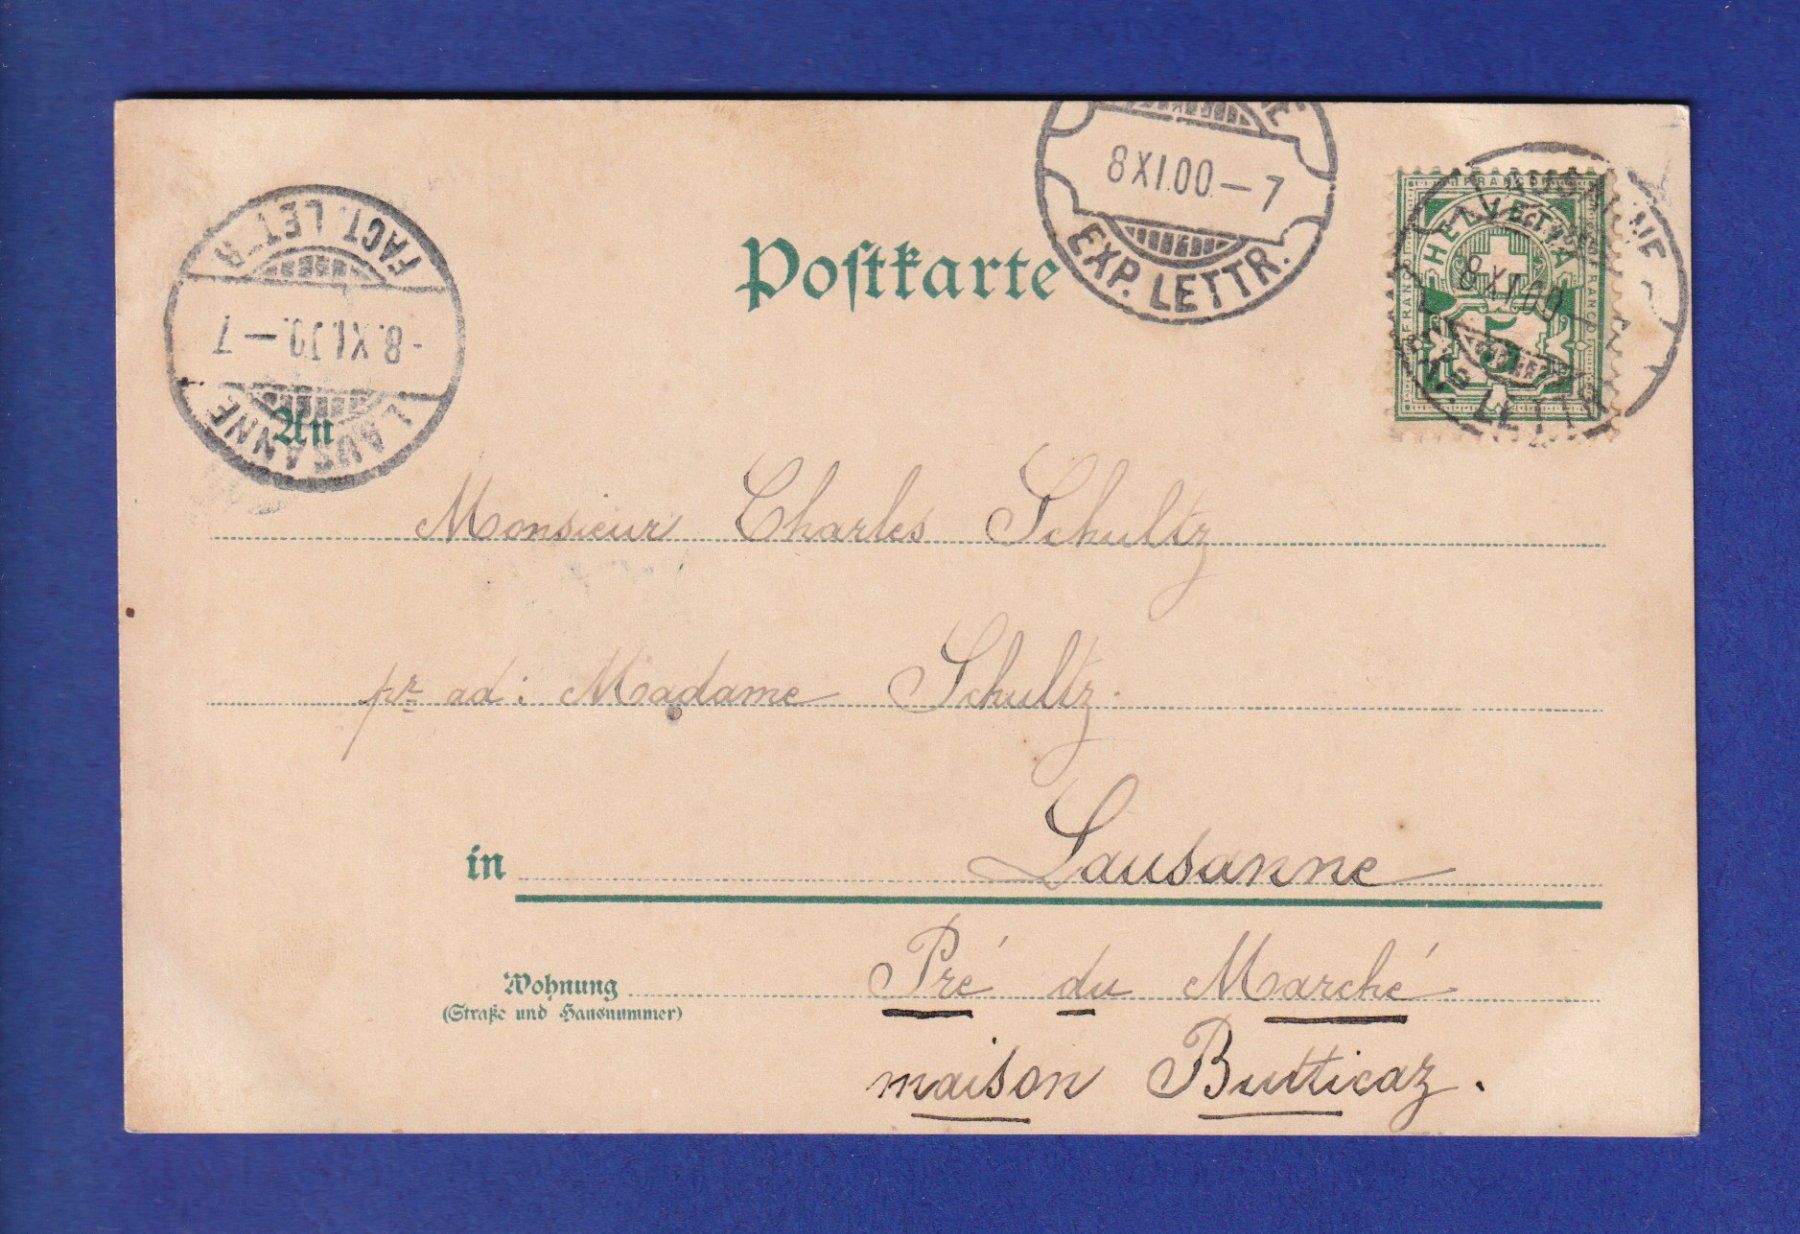 8 XI.00 — 7
EXP. LETTR.
FACT. LETTR
-8.XI.00.—7
LAUSANNE
HELVETIA
FRANCO
5
8 XI.00 —
EXP. LETTR.
Postkarte
An
Monsieur Charles Schultz
pr ad: Madame Schultz.
in Lausanne
Wohnung Pré du Marché
(Straße und Hausnummer)
maison Butticaz.